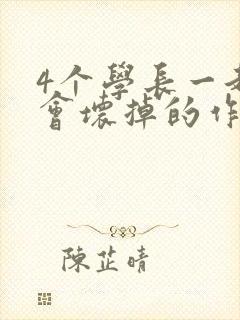 4个學長一
會壞掉的作
陳芷晴